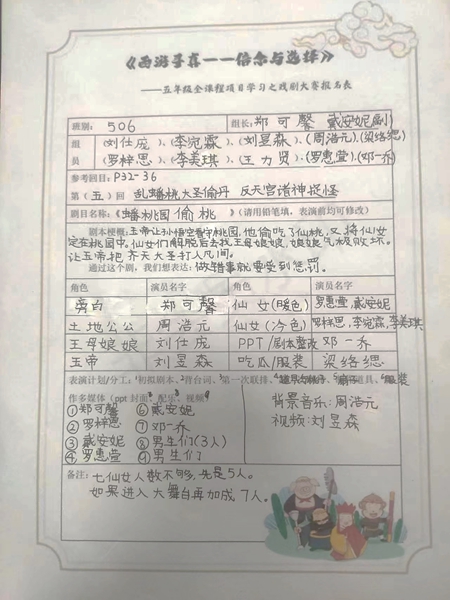 《西游寻真——信念与选择》
——五年级全课程项目学习之戏剧大赛报名表
班别: 506 组长: 郑可馨 戴安妮副
组 (刘仕庞)、(李宛霖)、(刘昱森)、(周浩元)、(梁络缌)
员 (罗梓思)、(李美琪)、(王力贤)、(罗惠萱)、(邓一乔)
参考回目: P32-36
第(五)回 乱蟠桃大圣偷丹 反天宫诸神捉怪
剧目名称:《蟠桃园偷桃》(请用铅笔填,表演前均可修改)
剧本梗概: 玉帝让孙悟空看守桃园,他偷吃了仙桃,又将仙女
定在桃园中。仙女们解脱后去找王母娘娘,娘娘气极败坏。
让玉帝把齐天大圣打入凡间。
通过这个剧,我们想表达: 做错事就要受到惩罚。
角色 演员名字 角色 演员名字
旁白 郑可馨 仙女(暖色) 罗惠萱,戴安妮
土地公公 周浩元 仙女(冷色) 罗梓思,李宛霖,李美琪
王母娘娘 刘仕庞 PPT/剧本整改 邓一乔
玉帝 刘昱森 吃瓜/服装 梁络缌
表演计划/分工: 1初拟剧本、2背台词、3第一次联排、道具、服装
作多媒体(ppt 封面、配乐、视频)
①郑可馨 ⑥戴安妮 背景音乐: 周浩元
②罗梓思 ⑦邓一乔 视频: 刘昱森
③戴安妮 ⑧男生们(3人)
④罗惠萱 ⑨男生们
备注: 七仙女人数不够,先是5人。
如果进入大舞台再加成7人。